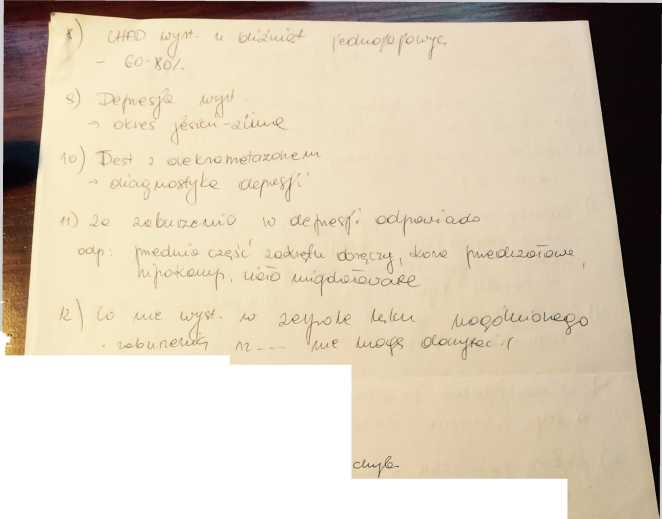 8) CHAD wyst. u bliźniąt jednojajowyc
- 60-80%
9) Depresja wyst.
→ okres jesień-zima
10) Test z deksametazonem
→ diagnostyka depresji
11) Za zaburzenia w depresji odpowiada
odp: przednia część zakrętu obręczy, kora przedczołowa,
hipokamp, ciało migdałowate
12) Co nie wyst. w zespole lęku uogólnionego
nie mogę doczytać :(
chyba